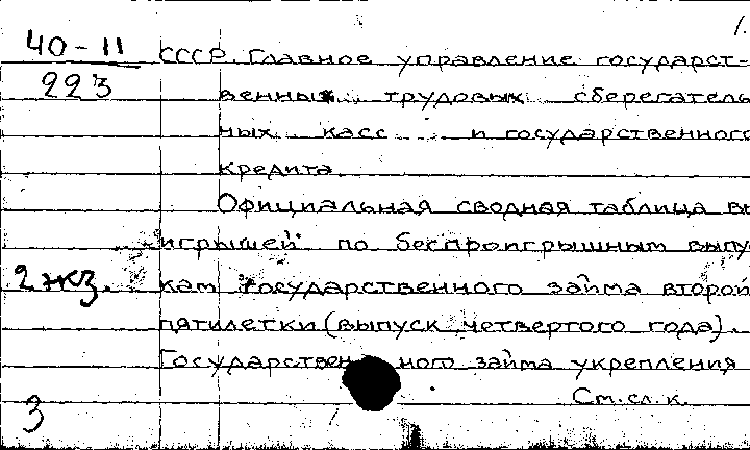 1.
40-11
223
СССР. Главное управление государст-
венных трудовых сберегатель
ных касс и государственного
кредита
Официальная сводная таблица вы
игрышей по беспроигрышным выпу
2 экз.
кам государственного займа второй
пятилетки (выпуск четвертого года).
Государствен ного займа укрепления
См. сл. к.
3